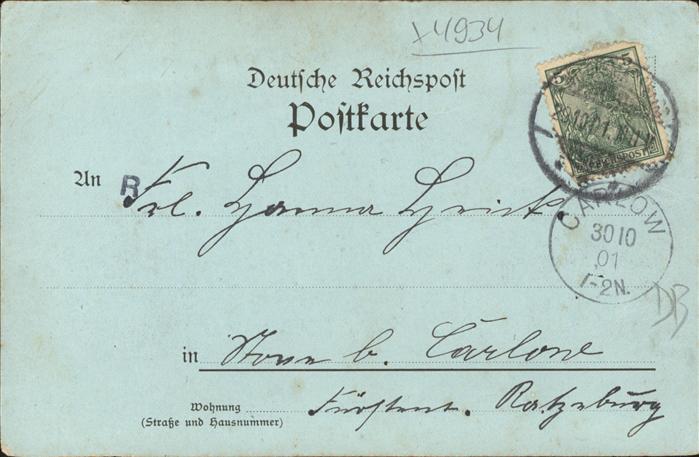 x4934
Deutsche Reichspost
Postkarte
5 5
REICHSPOST
An R Frl. Hanna
CARLOW
30 10
01
1-2N.
DB
in Stove b. Carlow
Wohnung Fürstent. Ratzeburg
(Straße und Hausnummer)